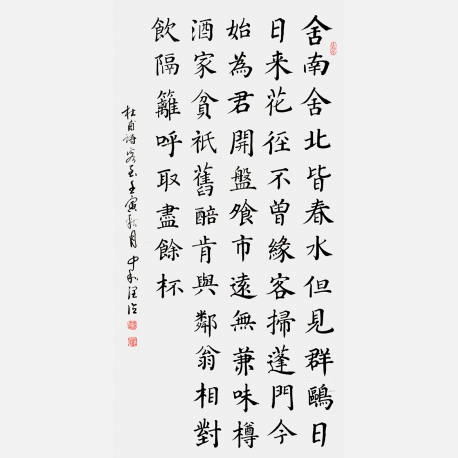 舍南舍北皆春水但見群鷗日
日來花徑不曾緣客掃蓬門今
始為君開盤飧市遠無兼味樽
酒家貧衹舊醅肯與鄰翁相對
飲隔籬呼取盡餘杯
杜甫詩客至壬寅秋月